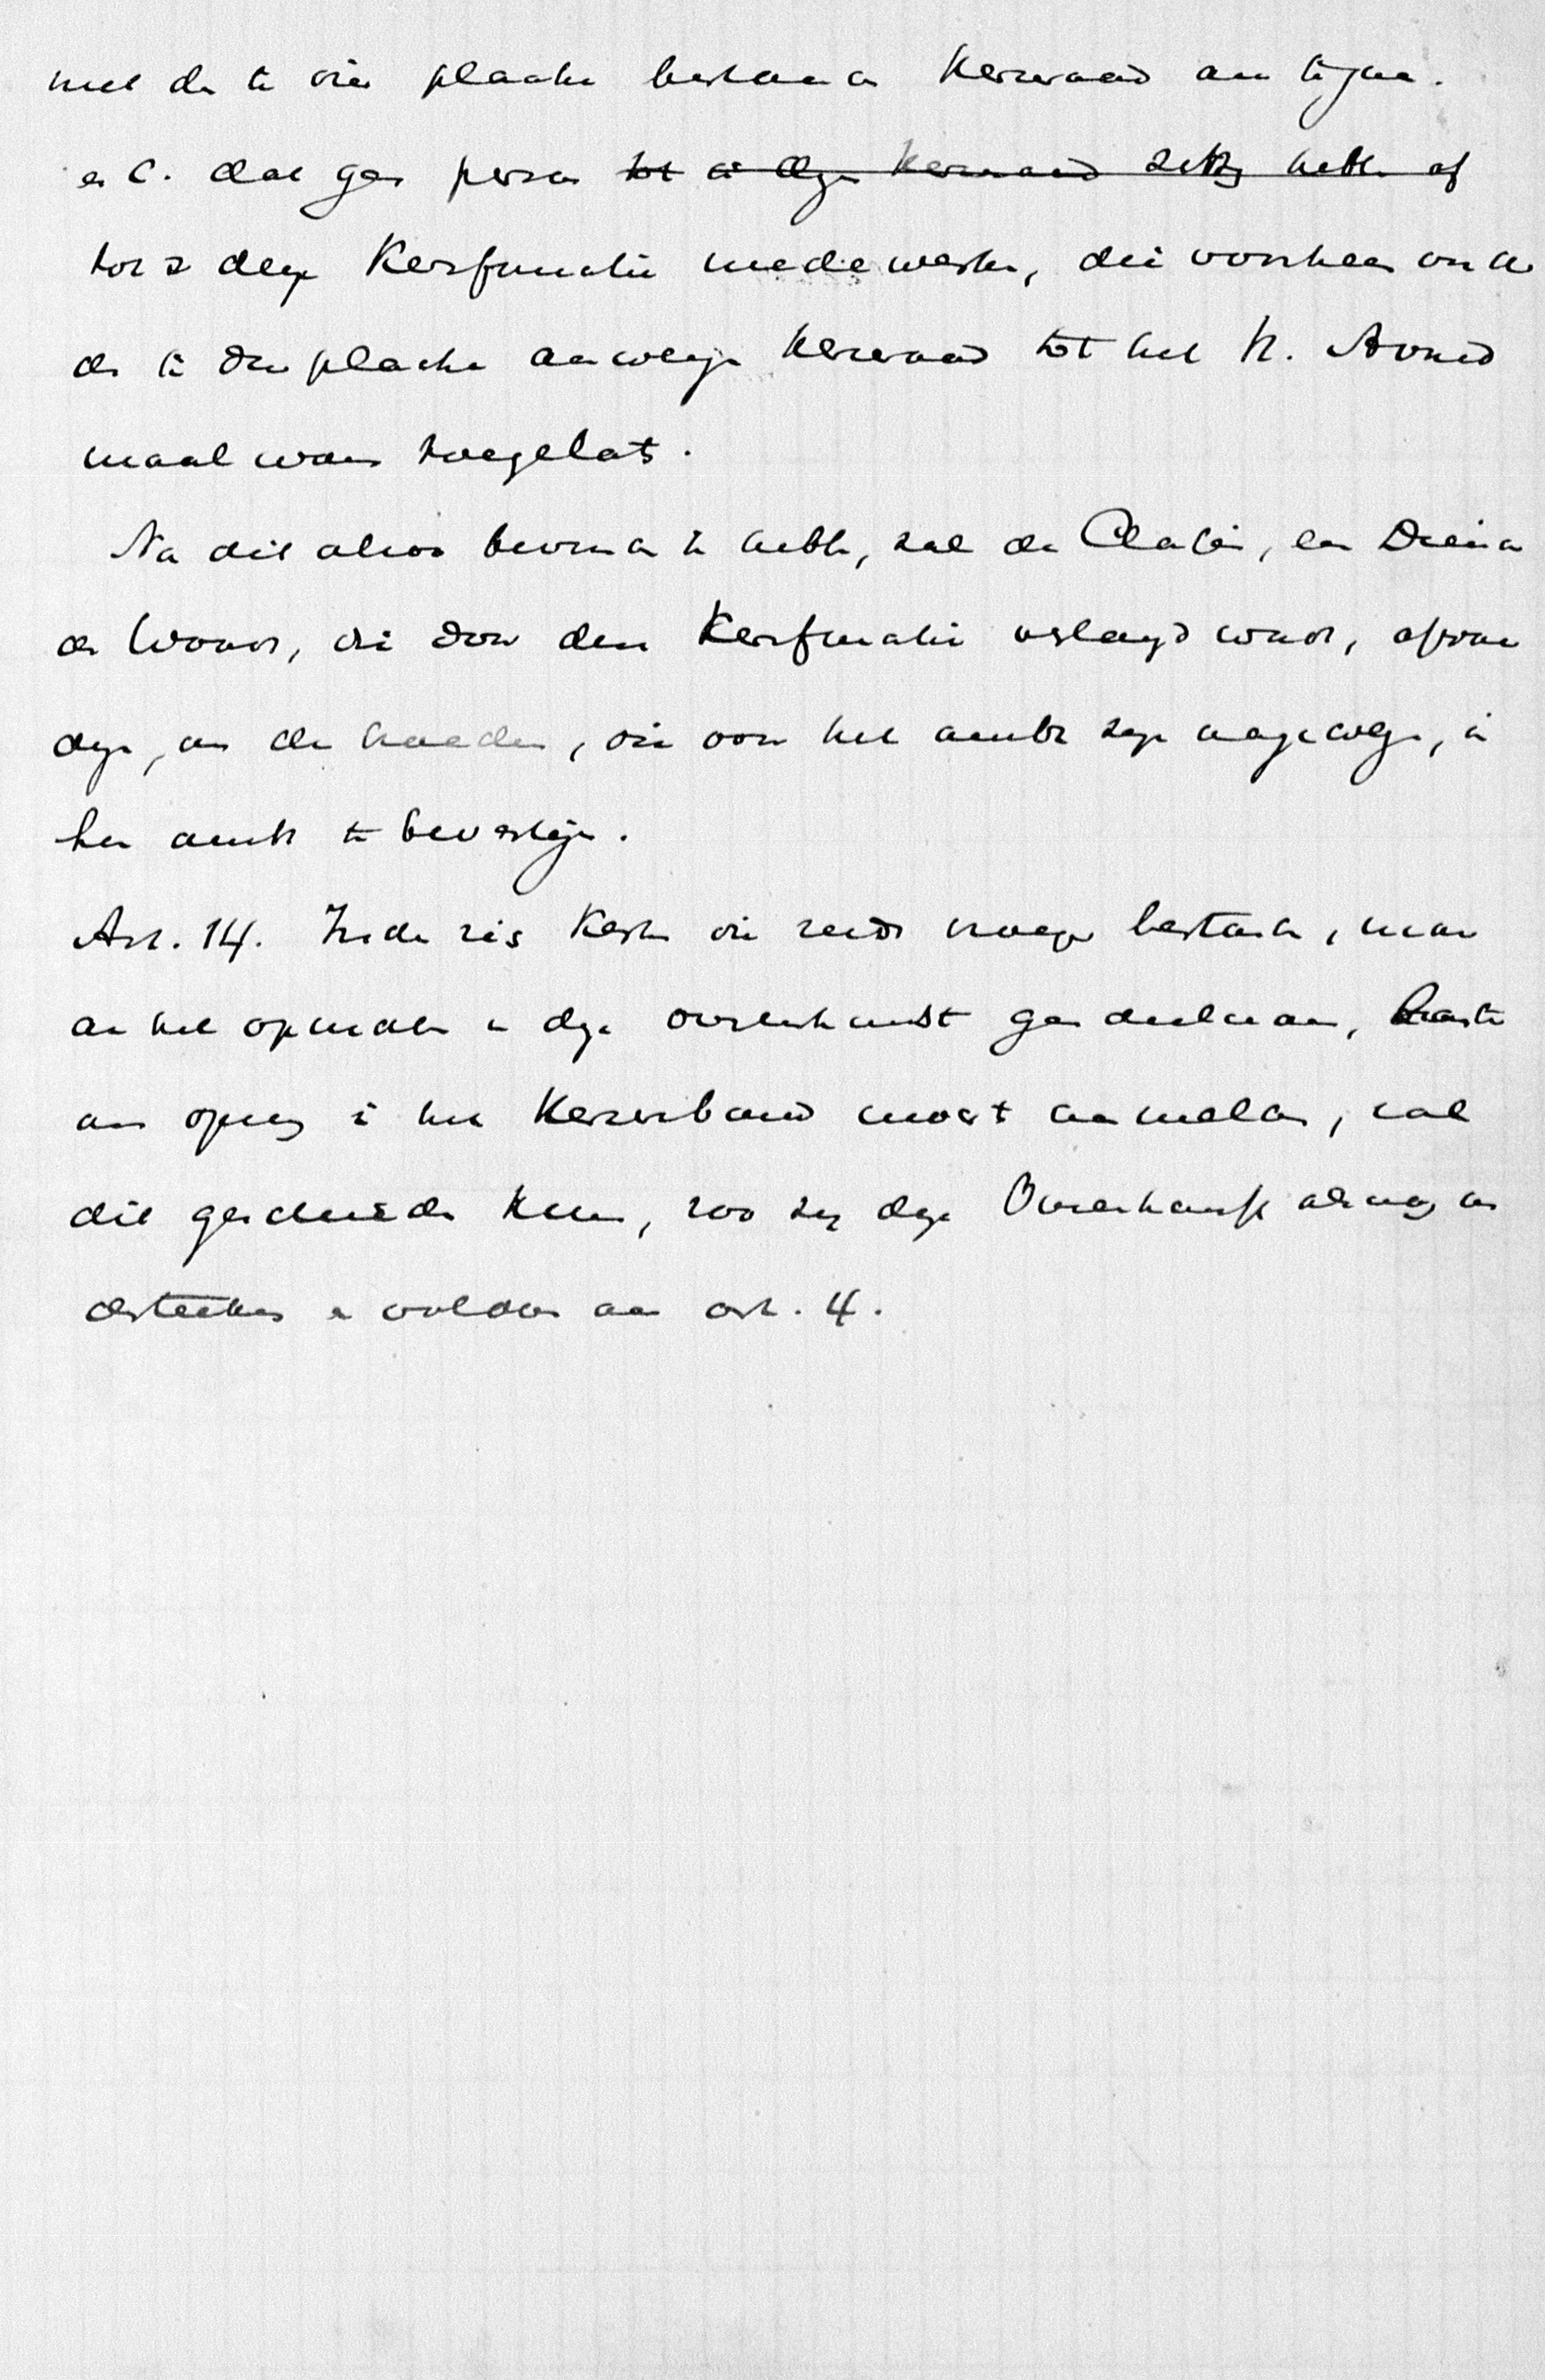 met de te dier plaatse bestaande Kerkeraad aan te gaan.
en C. dat geen personen tot in dezen Kerkeraad zitting hebben of
tot deze Kerkformatie medewerken, die voorheen onder
de te dier plaatse aanwezige Kerkeraad tot het H. Avond
maal waren toegelaten.
Na dit alzoo bevonden te hebben, zal de Classis, een Dienaar
des Woords, die door deze Kerkformatie verlangd wordt, afvaar
digen, om de broeders, die voor het ambt zijn aangewezen, in
hun ambt te bevestigen.
Art. 14. Indien zich Kerken die reeds vroeger bestonden, maar
aan het opmaken van deze overeenkomst geen deel namen,
om opneming in het Kerkverband mocht aanmelden, zal
dit geschieden kunnen, zoo zij deze Overeenkomst alsnog on
derteekenen en voldoen aan art. 4.